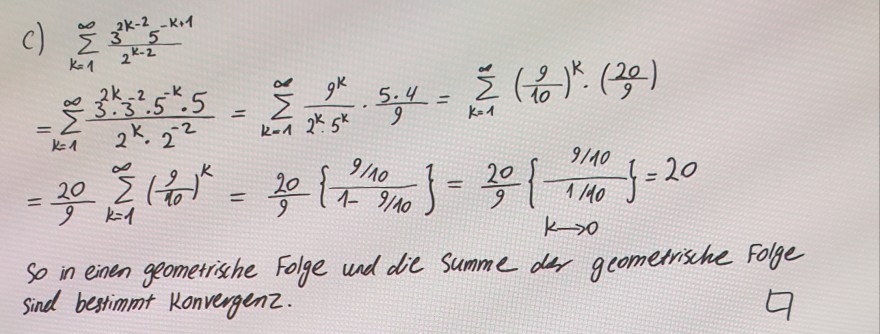 c) ∑_{k=1}^{∞} (3^{2k-2} 5^{-k+1}) / (2^{k-2})
= ∑_{k=1}^{∞} (3^{2k} · 3^{-2} · 5^{-k} · 5) / (2^k · 2^{-2}) = ∑_{k=1}^{∞} 9^k / (2^k · 5^k) · (5 · 4) / 9 = ∑_{k=1}^{∞} (9/10)^k · (20/9)
= 20/9 ∑_{k=1}^{∞} (9/10)^k = 20/9 { (9/10) / (1 - 9/10) } = 20/9 { (9/10) / (1/10) } = 20
k → 0
So in einen geometrische Folge und die Summe der geometrische Folge
sind bestimmt Konvergenz. □